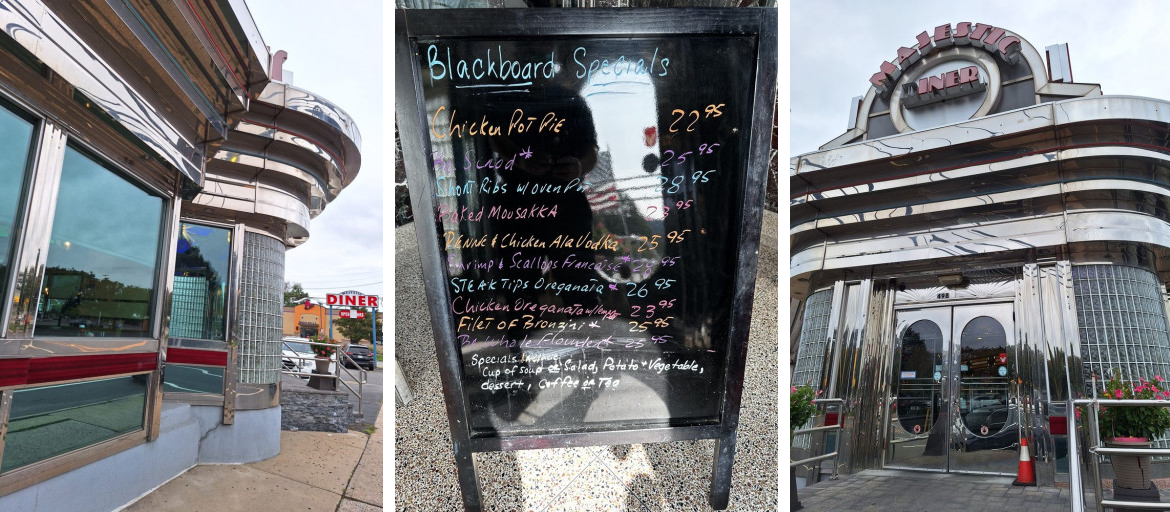 DINER
Blackboard Specials
Chicken Pot Pie 22.95
Scrod* 25.95
Short Ribs w/oven 28.95
Baked Mousakka 23.95
Penne & Chicken Ala Vodka 25.95
Shrimp & Scallops Francaise*
STEAK Tips Oreganata* 26.95
Chicken Oreganata 23.95
Filet of Bronzini* 25.95
Whole Flounder* 25.95
Specials Include
Cup of soup or Salad, Potato + Vegetable,
dessert, Coffee or Tea
MAJESTIC
DINER
498